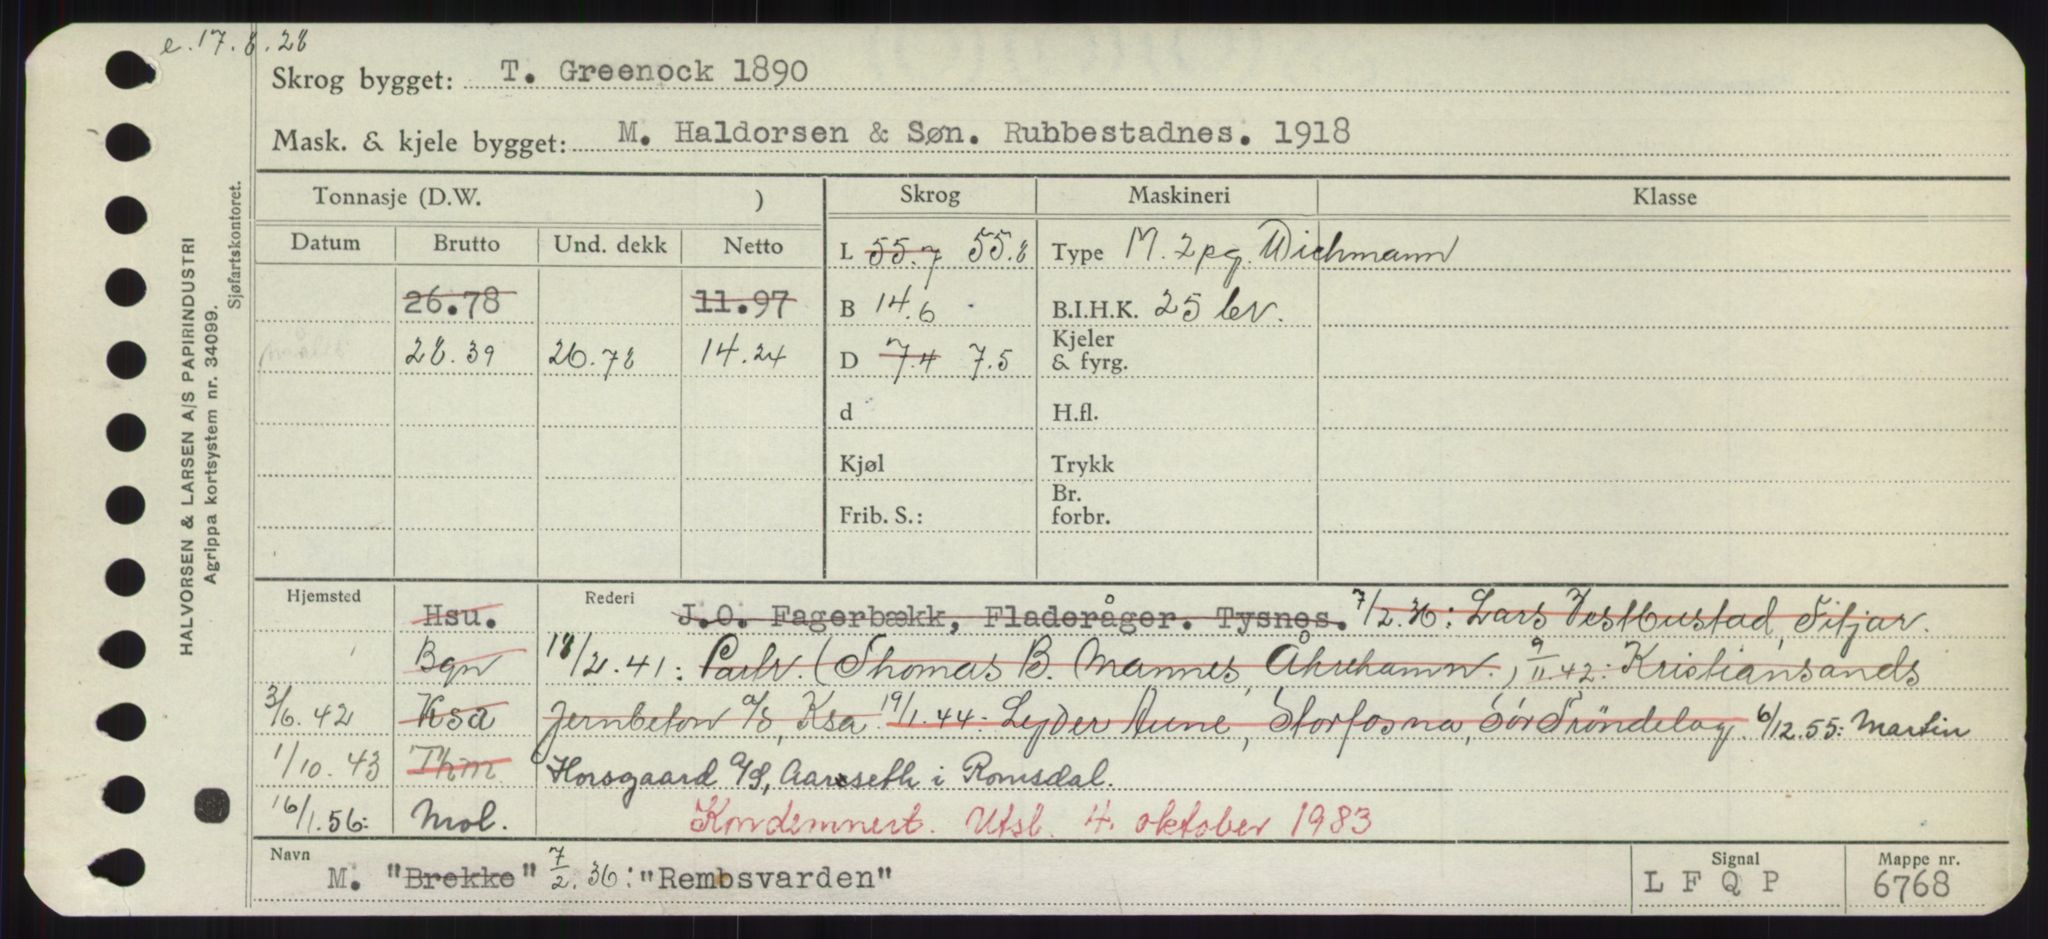 e. 17.8.28
Skrog bygget: T. Greenock 1890
Mask. & kjele bygget: M. Haldorsen & Søn. Rubbestadnes. 1918
HALVORSEN & LARSEN A/S PAPIRINDUSTRI
Agrippa kortsystem nr. 34099.
Sjøfartskontoret.
Tonnasje (D.W. ) Skrog Maskineri Klasse
Datum Brutto Und. dekk Netto
L 55.7 55.8 Type M. 2 pg. Wichmann
26.78 11.97 B 14.6 B.I.H.K. 25 lev.
målt 28.39 26.78 14.24 D 7.4 7.5 Kjeler & fyrg.
d H.fl.
Kjøl Trykk
Frib. S.: Br. forbr.
Hjemsted Rederi
Hsu. J.O. Fagerbækk, Fladeråger. Tysnes. 7/2.36: Lars Vestbustad, Fitjar.
Bgn 18/2.41: Partr. (Thomas B. Mannes, Åkrehamn.) 9/11.42: Kristiansands
3/6.42 Ksa Jernbeton a/s, Ksa. 19/1.44: Lyder Aune, Storfosna, Sør Trøndelag. 6/12.55: Martin
1/10.43 Thm Horsgaard a/s, Aarseth i Romsdal.
16/1.56: Mol. Kondemnert. Utsl. 4. oktober 1983
Navn M. "Brekke" 7/2.36: "Rembsvarden"
Signal L F Q P
Mappe nr. 6768